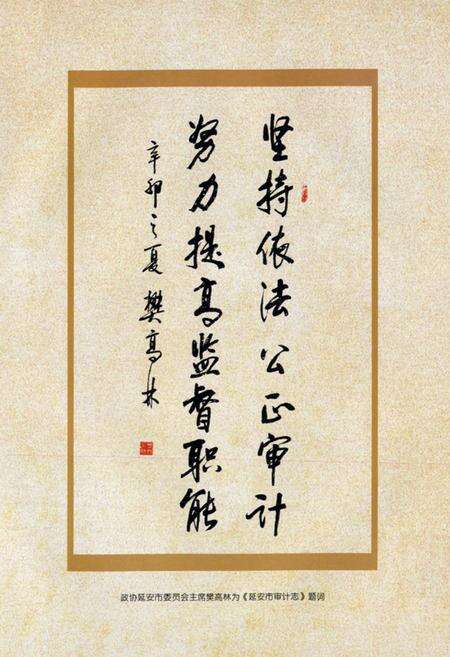 坚持依法公正审计
努力提高监督职能
辛卯之夏 樊高林
政协延安市委员会主席樊高林为《延安市审计志》题词